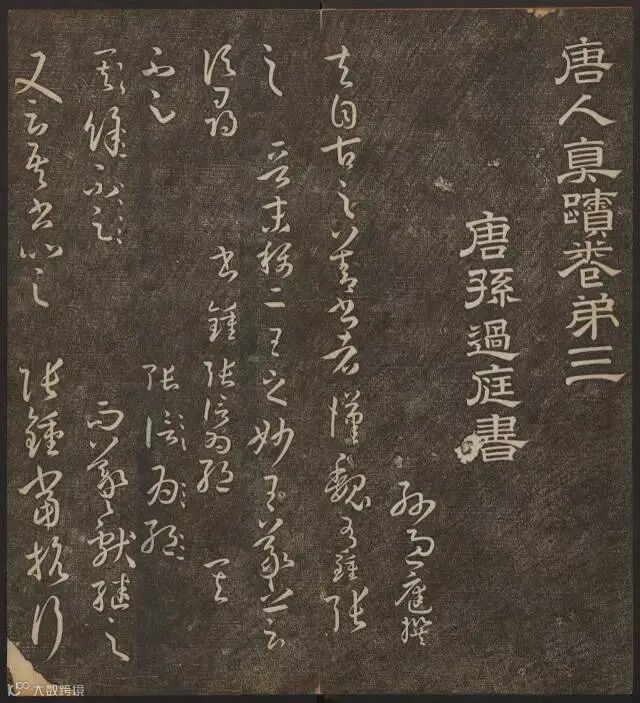 唐人真蹟卷弟三
唐孫過庭書
孫過庭撰
夫自古之善書者漢魏有鍾張
之 晉末稱二王之妙王羲之云
頃尋 書鍾張信為絕 其
不足 張信為絕
其餘不足 而羲獻繼之
又云吾書比之 張鍾當抗行
大数跨境